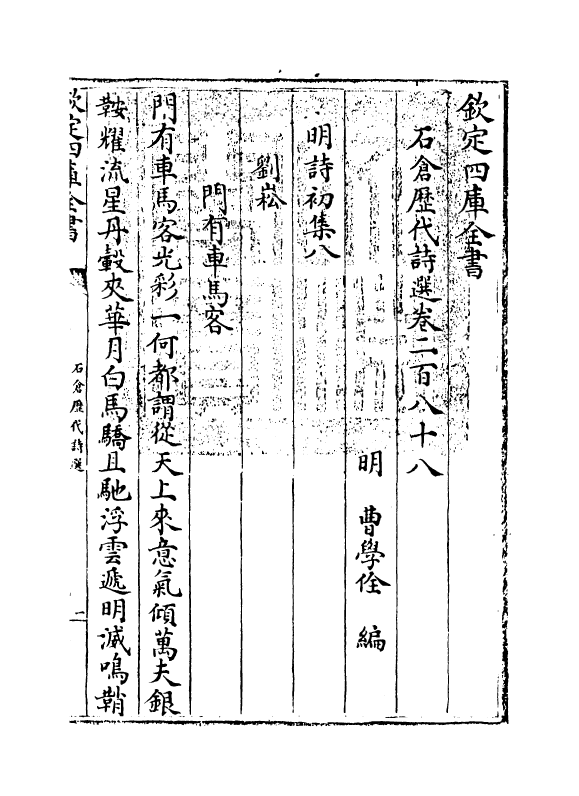 欽定四庫全書
石倉歴代詩選卷二百八十八
明 曹學佺 編
明詩初集八
劉崧
門有車馬客
門有車馬客光彩一何都謂從天上來意氣傾萬夫銀
鞍耀流星丹轂夾華月白馬驕且馳浮雲遞明滅鳴鞘
欽定四庫全書
石倉歴代詩選